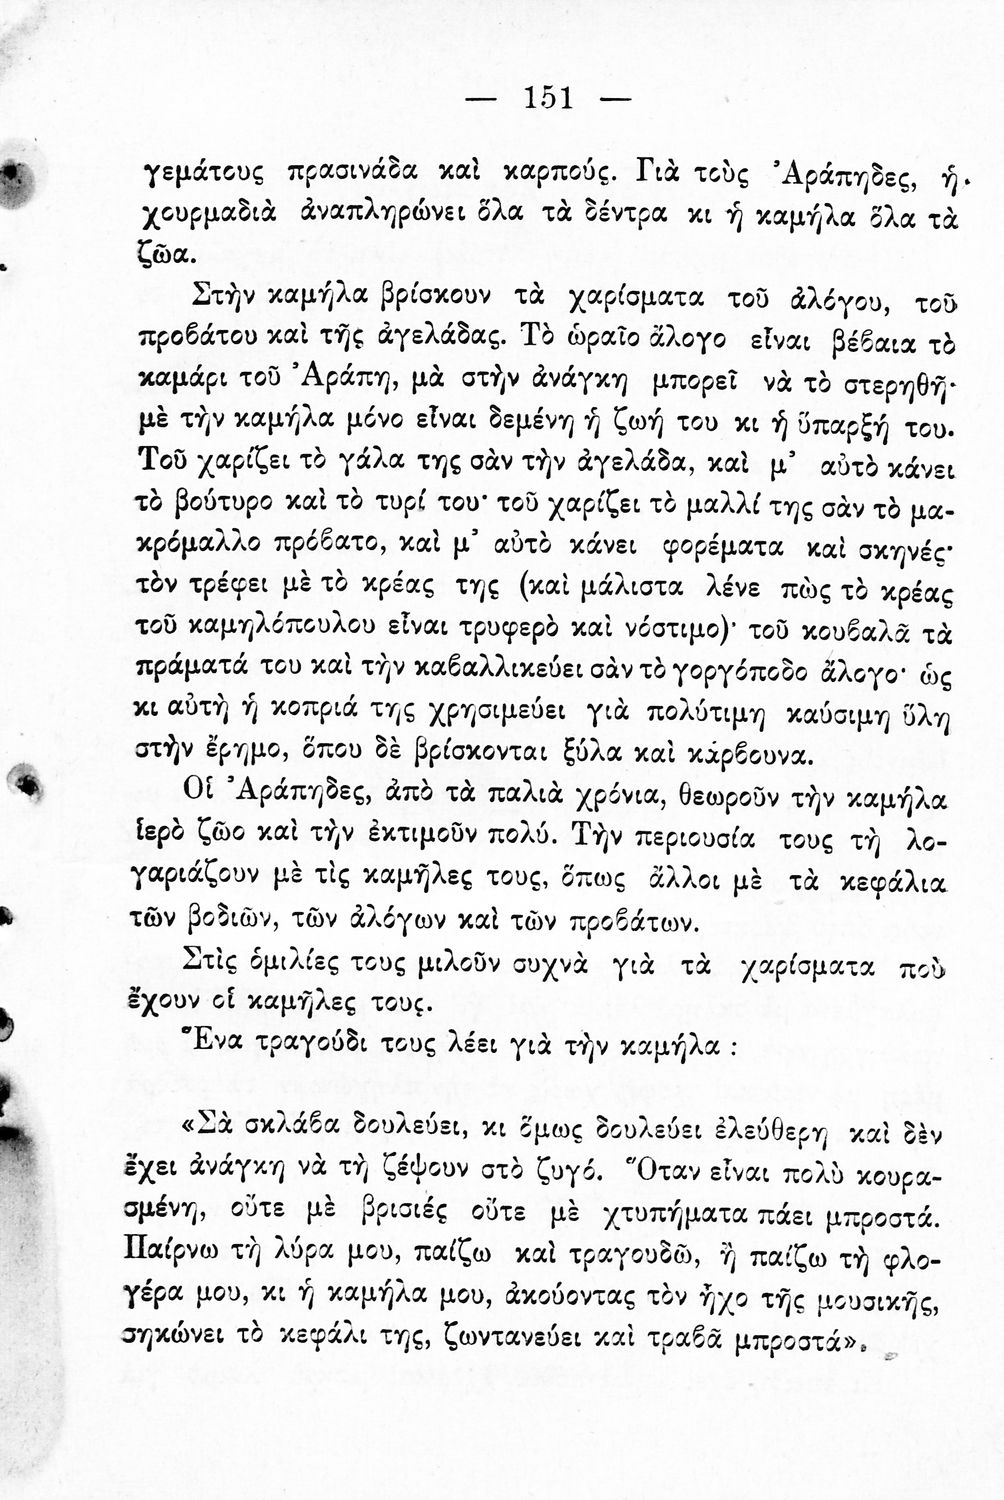 — 151 —
γεμάτους πρασινάδα καὶ καρποὺς. Γιὰ τοὺς Ἀράπηδες, ἡ
χουρμαδιὰ ἀναπληρώνει ὅλα τὰ δέντρα κι ἡ καμήλα ὅλα τὰ
ζῶα.
Στὴν καμήλα βρίσκουν τὰ χαρίσματα τοῦ ἀλόγου, τοῦ
προβάτου καὶ τῆς ἀγελάδας. Τὸ ὡραῖο ἄλογο εἶναι βέβαια τὸ
καμάρι τοῦ Ἀράπη, μὰ στὴν ἀνάγκη μπορεῖ νὰ τὸ στερηθῆ·
μὲ τὴν καμήλα μόνο εἶναι δεμένη ἡ ζωή του κι ἡ ὕπαρξή του.
Τοῦ χαρίζει τὸ γάλα της σὰν τὴν ἀγελάδα, καὶ μ' αὐτὸ κάνει
τὸ βούτυρο καὶ τὸ τυρί του· τοῦ χαρίζει τὸ μαλλί της σὰν τὸ μα-
κρόμαλλο πρόβατο, καὶ μ' αὐτὸ κάνει φορέματα καὶ σκηνές·
τὸν τρέφει μὲ τὸ κρέας της (καὶ μάλιστα λένε πὼς τὸ κρέας
τοῦ καμηλόπουλου εἶναι τρυφερὸ καὶ νόστιμο)· τοῦ κουβαλᾶ τὰ
πράματά του καὶ τὴν καβαλλικεύει σὰν τὸ γοργόποδο ἄλογο· ὡς
κι αὐτὴ ἡ κοπριά της χρησιμεύει γιὰ πολύτιμη καύσιμη ὕλη
στὴν ἔρημο, ὅπου δὲ βρίσκονται ξύλα καὶ κάρβουνα.
Οἱ Ἀράπηδες, ἀπὸ τὰ παλιὰ χρόνια, θεωροῦν τὴν καμήλα
ἱερὸ ζῶο καὶ τὴν ἐκτιμοῦν πολύ. Τὴν περιουσία τους τὴ λο-
γαριάζουν μὲ τὶς καμῆλες τους, ὅπως ἄλλοι μὲ τὰ κεφάλια
τῶν βοδιῶν, τῶν ἀλόγων καὶ τῶν προβάτων.
Στὶς ὁμιλίες τους μιλοῦν συχνὰ γιὰ τὰ χαρίσματα ποὺ
ἔχουν οἱ καμῆλες τους.
Ἕνα τραγούδι τους λέει γιὰ τὴν καμήλα :
«Σὰ σκλάβα δουλεύει, κι ὅμως δουλεύει ἐλεύθερη καὶ δὲν
ἔχει ἀνάγκη νὰ τὴ ζέψουν στὸ ζυγό. Ὅταν εἶναι πολὺ κουρα-
σμένη, οὔτε μὲ βρισιές οὔτε μὲ χτυπήματα πάει μπροστά.
Παίρνω τὴ λύρα μου, παίζω καὶ τραγουδῶ, ἢ παίζω τὴ φλο-
γέρα μου, κι ἡ καμήλα μου, ἀκούοντας τὸν ἦχο τῆς μουσικῆς,
σηκώνει τὸ κεφάλι της, ζωντανεύει καὶ τραβᾶ μπροστά».